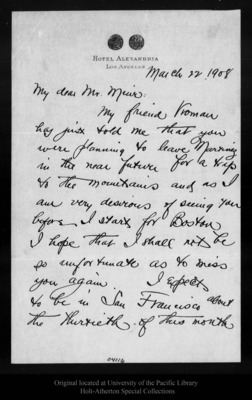 HOTEL ALEXANDRIA
LOS ANGELES
March 22 1908
My dear Mr. Muir:
My friend Vroman
has just told me that you
were planning to leave Monday
in the near future for a trip
to the mountains and as I
am very desirous of seeing you
before I start for Boston
I hope that I shall not be
so unfortunate as to miss
you again. I expect
to be in San Francisco about
the thirtieth of this month
04116
Original located at University of the Pacific Library
Holt-Atherton Special Collections